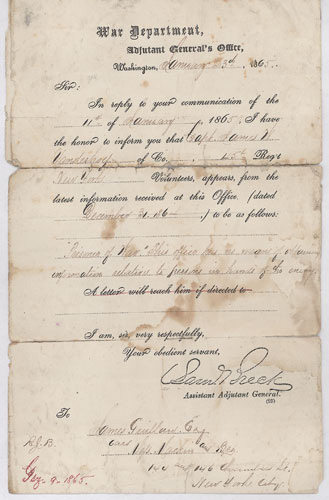 War Department,
Adjutant General's Office,
Washington, January 23d, 1865.
Sir:
In reply to your communication of the
11th of January, 1865, I have
the honor to inform you that Capt. James
of Co. 45th Reg't
New York Volunteers, appears, from the
latest information received at this Office, (dated
December 31, 1864) to be as follows:
"Prisoner of War." This office has no means of obtaining
information relative to prisoners in hands of the enemy.
A letter will reach him if directed to
I am, sir, very respectfully,
Your obedient servant,
Sam'l Breck
Assistant Adjutant General.
To
James Esq
care
146 Chambers St.
New York City.